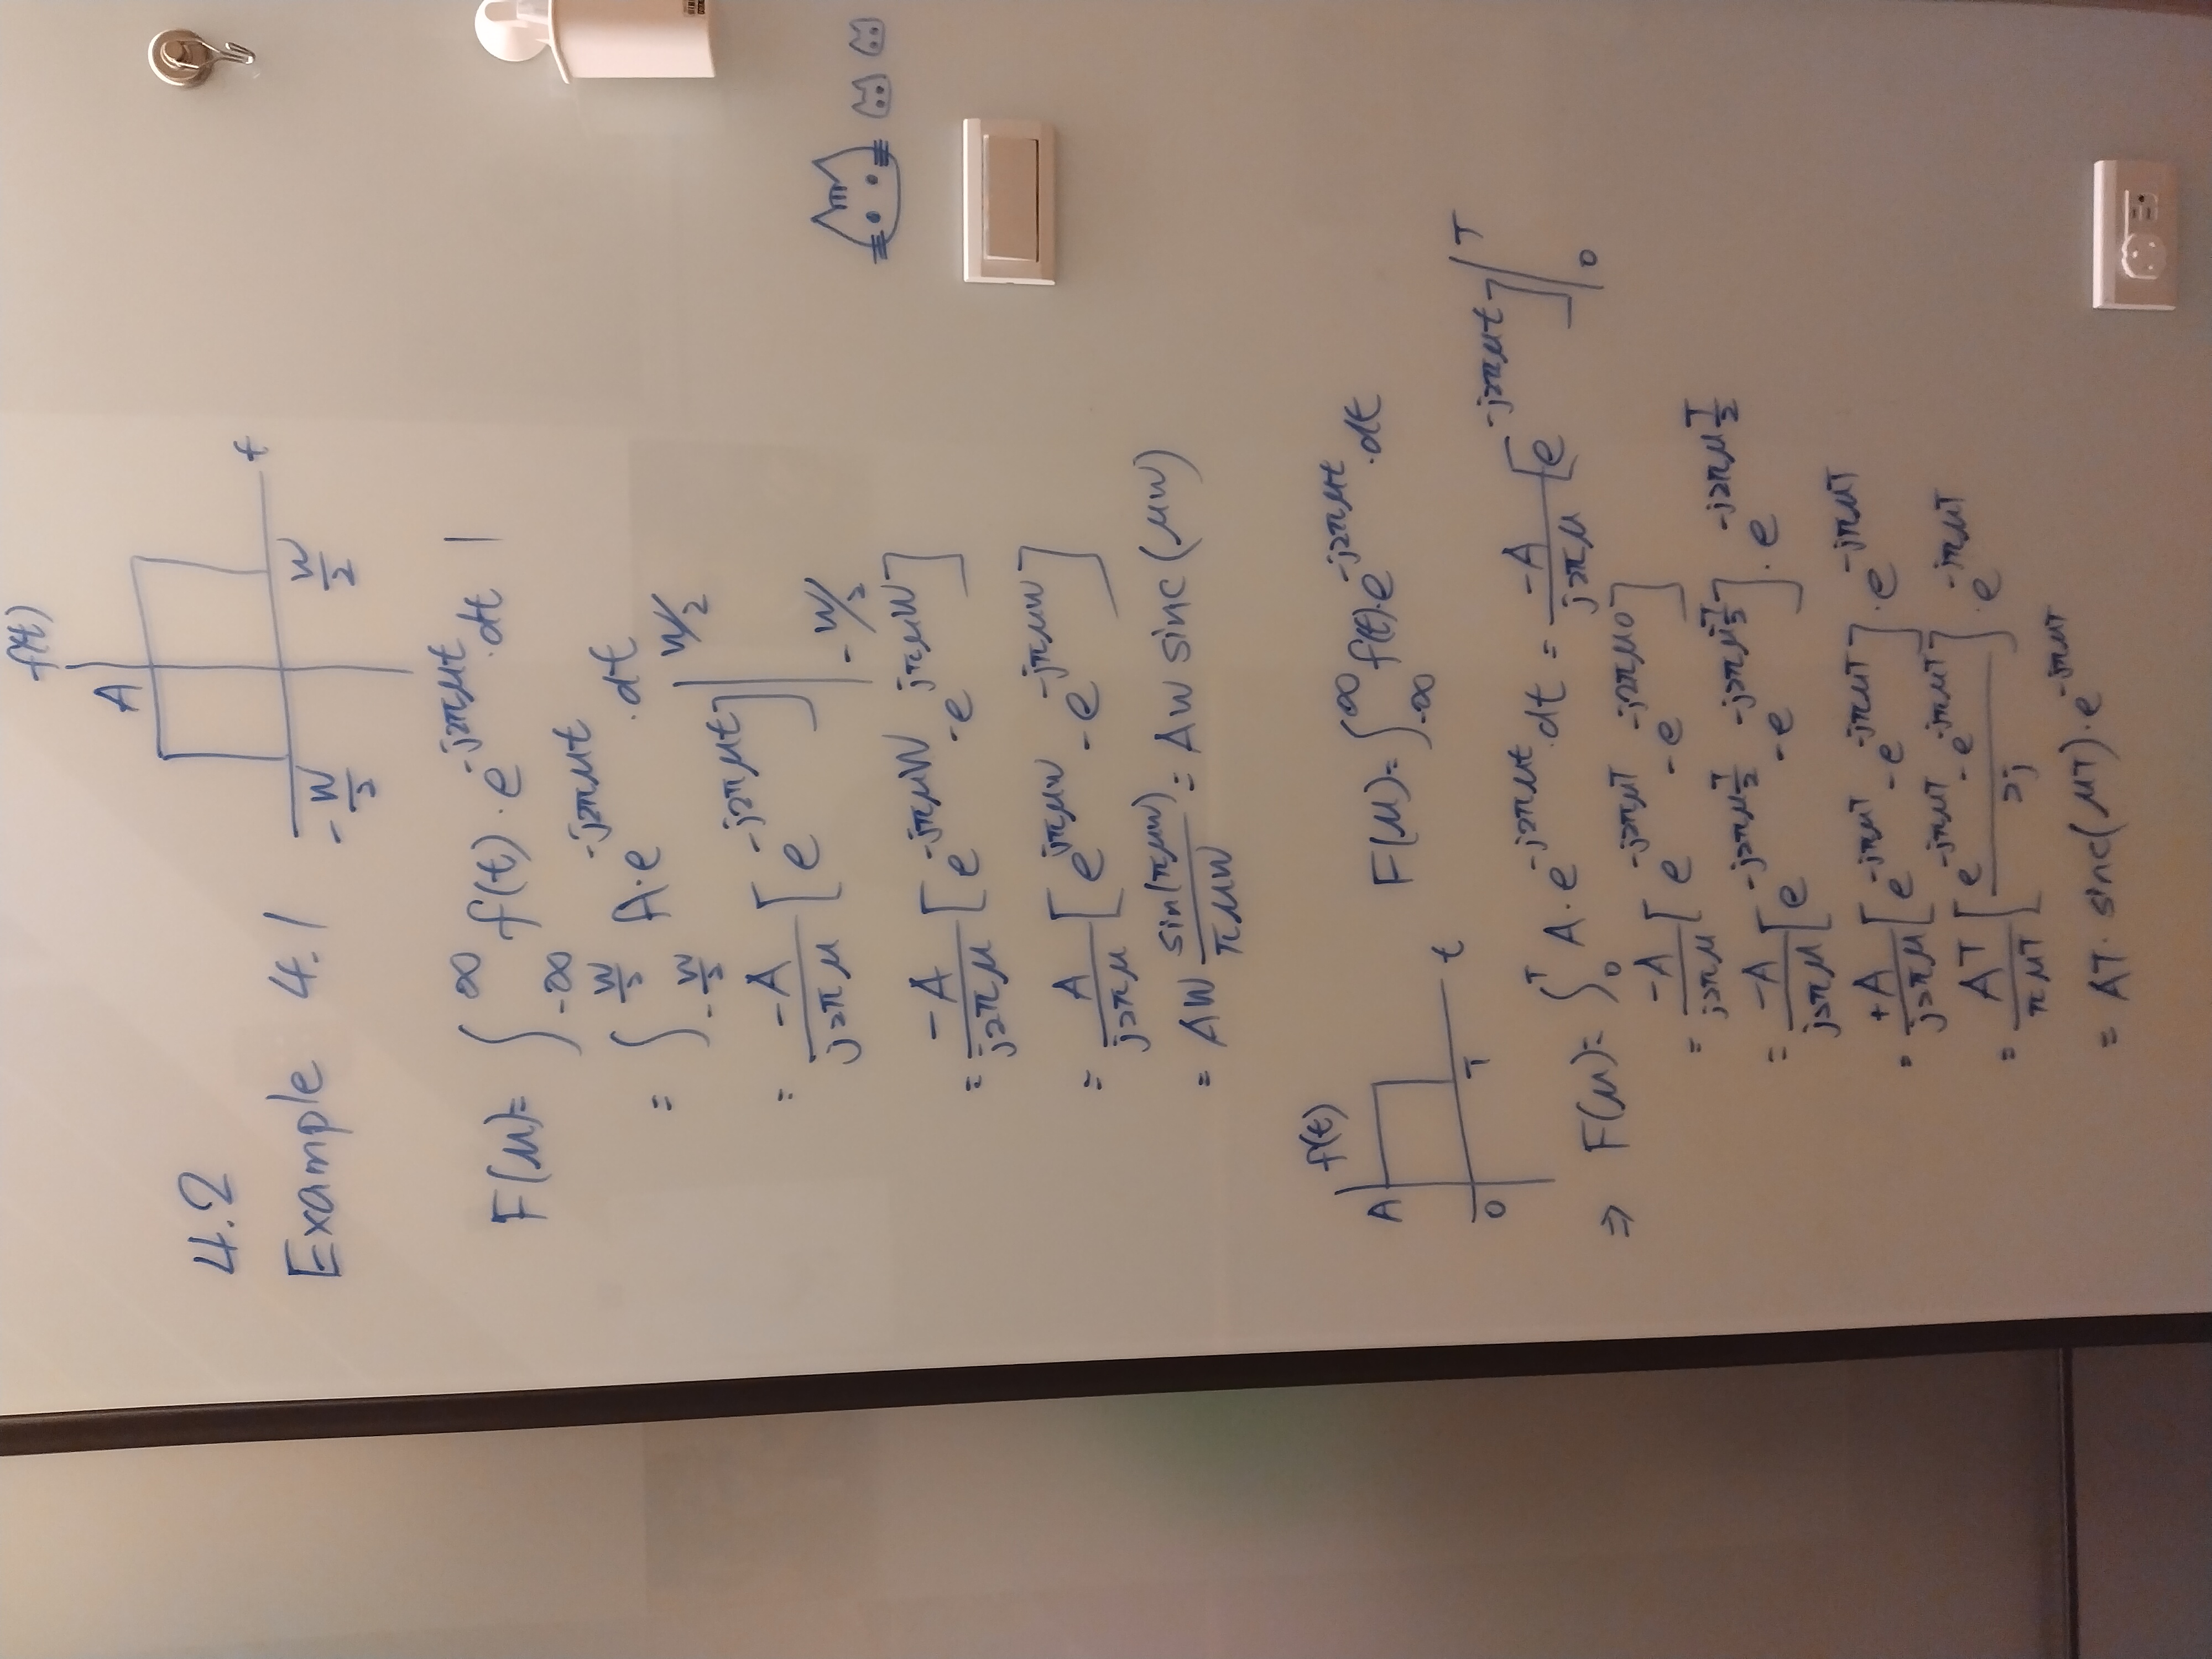 f(t)
A
t
-W/2
W/2
4.2
Example 4.1
F(μ)= ∫_{-∞}^{∞} f(t)·e^{-j2πμt}·dt |
= ∫_{-W/2}^{W/2} A·e^{-j2πμt}·dt
= -A/(j2πμ) [e^{-j2πμt}] |_{-W/2}^{W/2}
= -A/(j2πμ) [e^{-jπμW} - e^{jπμW}]
= A/(j2πμ) [e^{jπμW} - e^{-jπμW}]
= AW sin(πμW)/(πμW) = AW sinc(μW)
f(t)
A
t
0
T
F(μ)= ∫_{-∞}^{∞} f(t)·e^{-j2πμt}·dt
⇒ F(μ)= ∫_{0}^{T} A·e^{-j2πμt}·dt = -A/(j2πμ) [e^{-j2πμt}] |_{0}^{T}
= -A/(j2πμ) [e^{-j2πμT} - e^{-j2πμ0}]
= -A/(j2πμ) [e^{-j2πμT/2} - e^{-j2πμ-T/2}]·e^{-j2πμT/2}
= +A/(j2πμ) [e^{-jπμT} - e^{-jπμT}]·e^{-jπμT}
= AT/(πμT) [(e^{-jπμT} - e^{-jπμT})/2j]·e^{-jπμT}
= AT·sinc(μT)·e^{-jπμT}